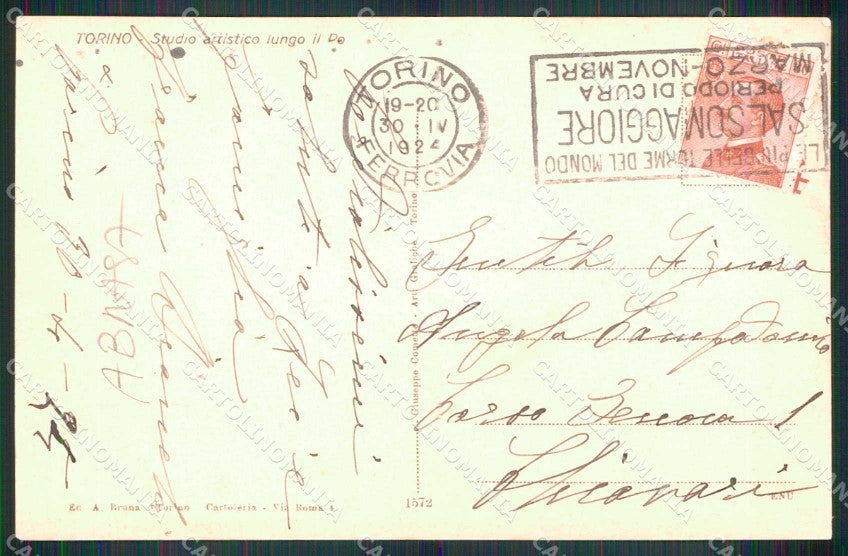 TORINO - Studio artistico lungo il Po
TORINO
19-20
30 IV
1924
FERROVIA
LE PIÙ BELLE TERME DEL MONDO
SALSOMAGGIORE
PERIODO DI CURA
MARZO-NOVEMBRE
Gentil Signora
Angela Campodonico
Corso Genova 1
Chiavari
Cordialissimi
saluti a Lei e
famiglia
Torino 30-4-
ABM787
Giuseppe Comella - Arti Grafiche - Torino
Ed. A. Bruna Torino Cartoleria - Via Roma
1572
ENU
CARTOLINOMANIA